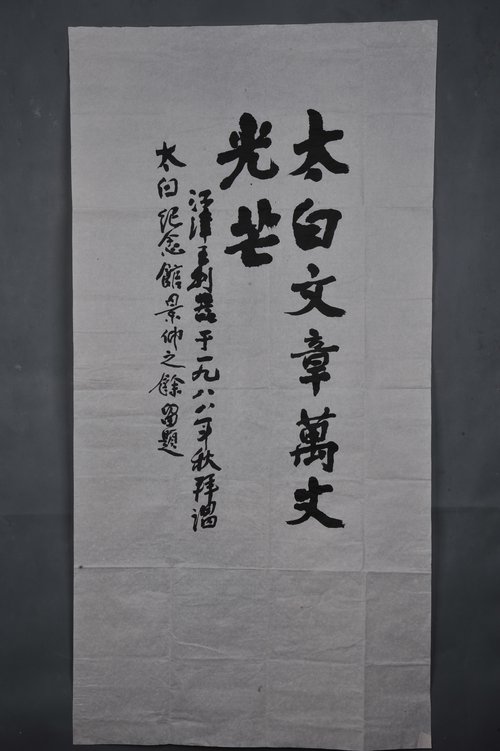 太白文章萬丈
光芒
江津王利器于一九八八年秋拜謁
太白紀念館景仰之餘留題